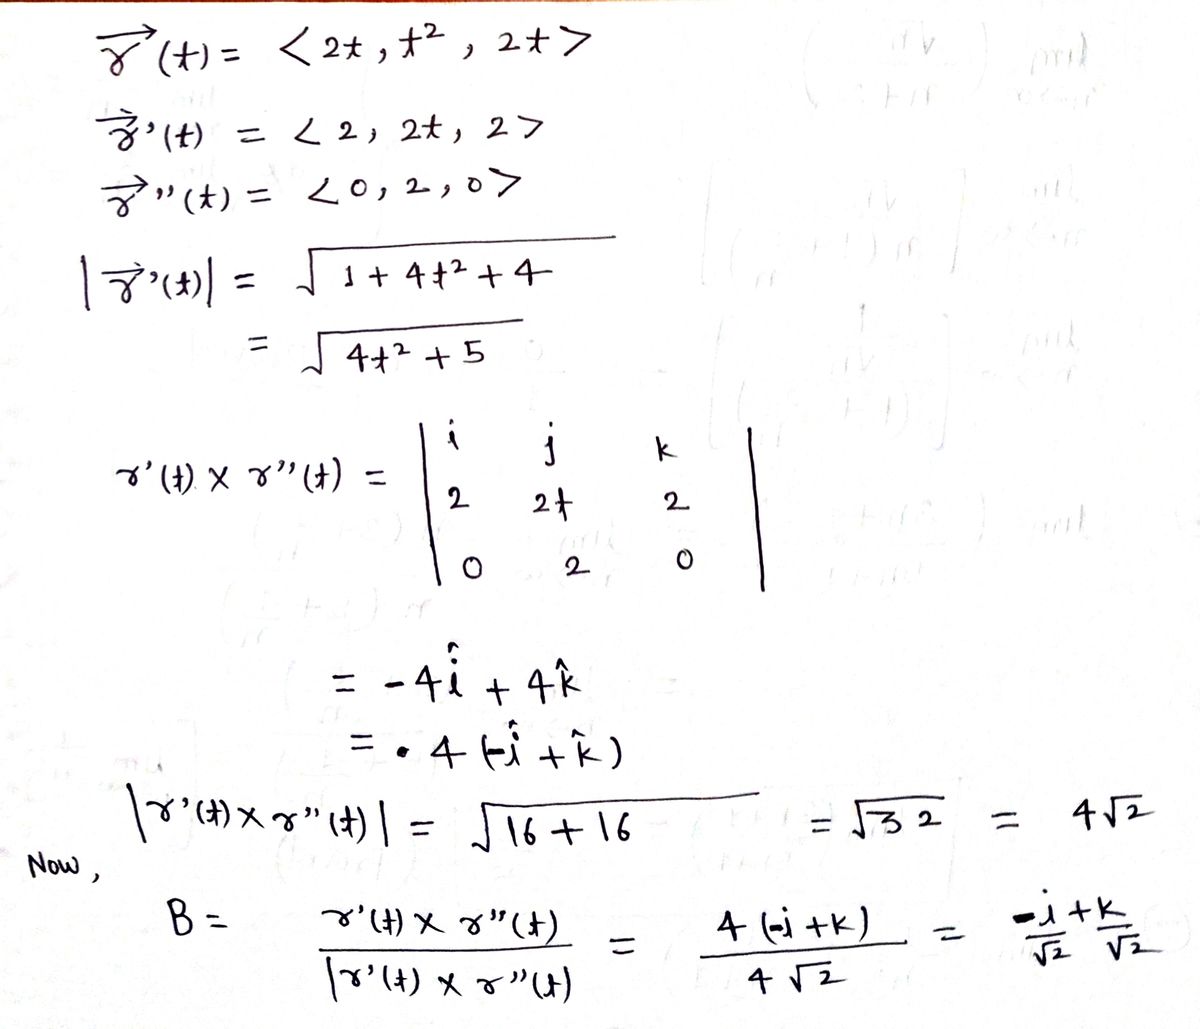 r⃗(t) = <2t, t², 2t>
r⃗'(t) = <2, 2t, 2>
r⃗''(t) = <0, 2, 0>
|r⃗'(t)| = √(1 + 4t² + 4)
= √(4t² + 5)
r'(t) × r''(t) = | i j k
2 2t 2
0 2 0 |
= -4î + 4k̂
= · 4 (-î + k̂)
|r'(t) × r''(t)| = √(16 + 16) = √32 = 4√2
Now,
B = r'(t) × r''(t) / |r'(t) × r''(t) = 4 (-i + k) / 4√2 = -i/√2 + k/√2